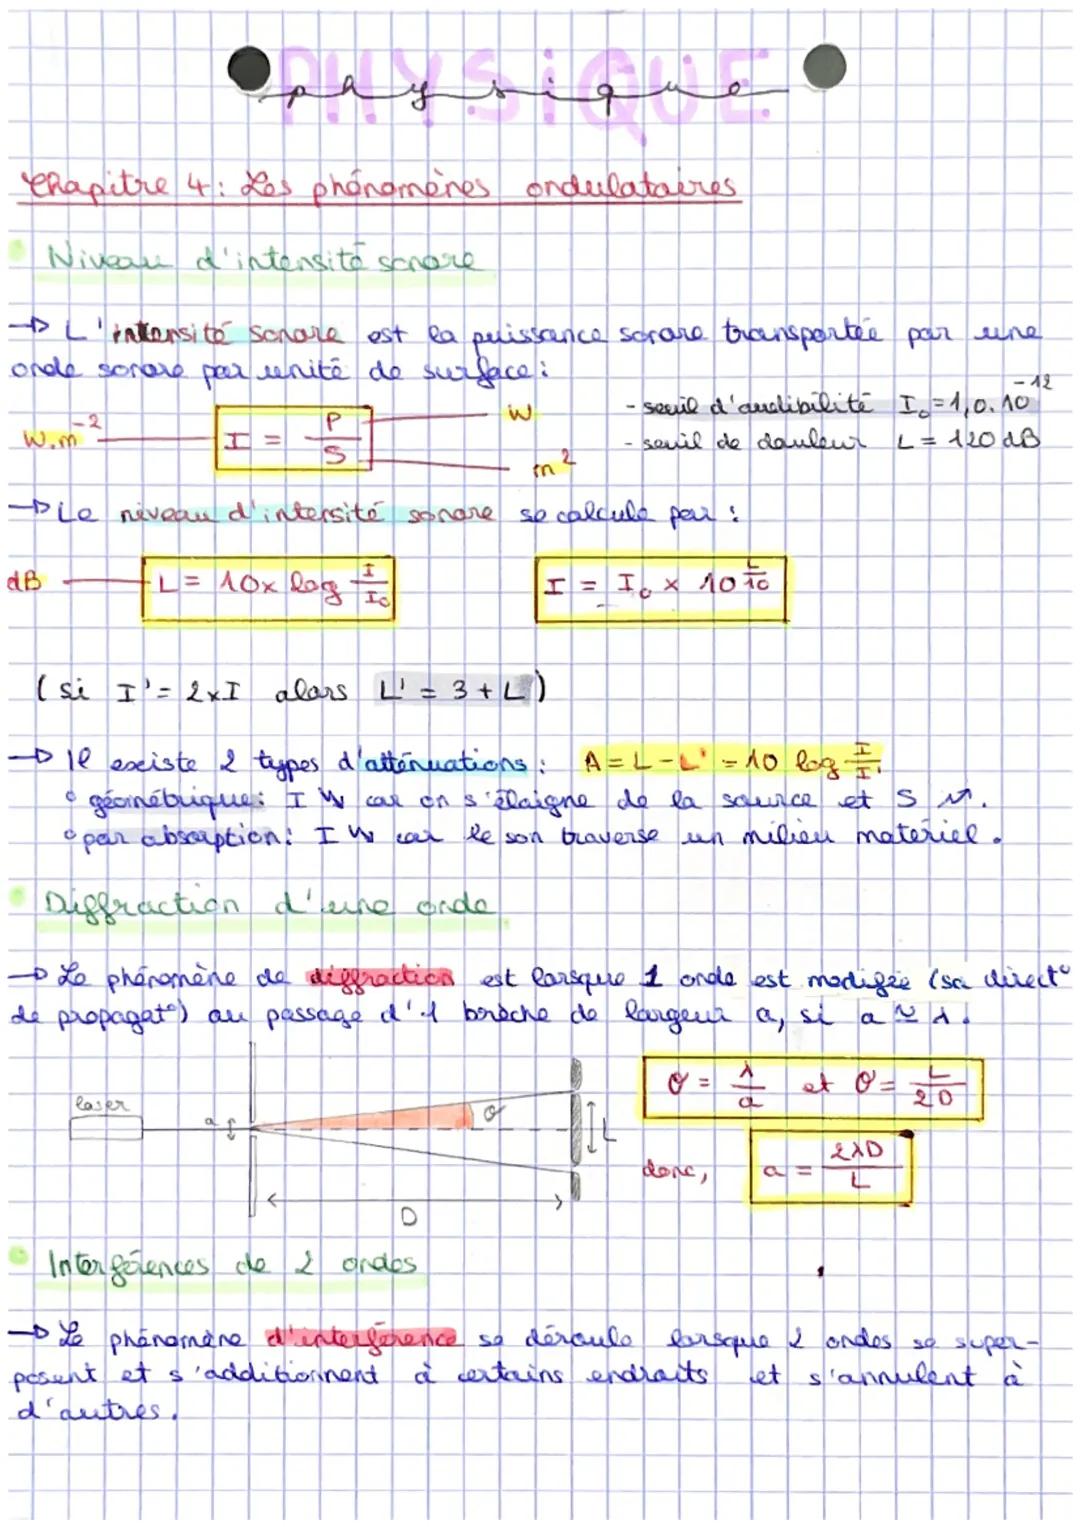 PHYSIQUE
physique
Chapitre 4 : Les phénomènes ondulatoires
Niveau d'intensité sonore
→ L'intensité sonore est la puissance sonore transportée par une
onde sonore par unité de surface :
W.m⁻² I = P/S W m²
- seuil d'audibilité I₀ = 1,0.10⁻¹²
- seuil de douleur L = 120 dB
→ Le niveau d'intensité sonore se calcule par :
dB L = 10 x log I/I₀ I = I₀ x 10^(L/10)
(si I' = 2xI alors L' = 3 + L)
→ Il existe 2 types d'atténuations : A = L - L' = 10 log I/I'
° géométrique : I ↘ car on s'éloigne de la source et S ↗.
° par absorption : I ↘ car le son traverse un milieu matériel.
Diffraction d'une onde
→ Le phénomène de diffraction est lorsque 1 onde est modifiée (sa direct°
de propagat°) au passage d'1 brèche de largeur a, si a ≃ λ.
laser a θ L D
θ = λ/a et θ = L/2D
donc, a = 2λD/L
Interférences de 2 ondes
→ Le phénomène d'interférence se déroule lorsque 2 ondes se super-
posent et s'additionnent à certains endroits et s'annulent à
d'autres.